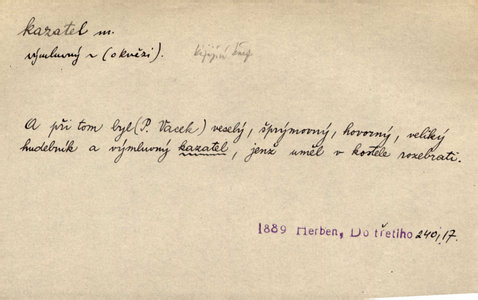 kazatel m.
výmluvný ~ (o kněži).
A při tom byl (P. Vacek) veselý, šprýmovný, hovorný, veliký
hudebník a výmluvný kazatel, jenž uměl v kostele rozebrati.
1889 Herben, Do třetího 240, 17.